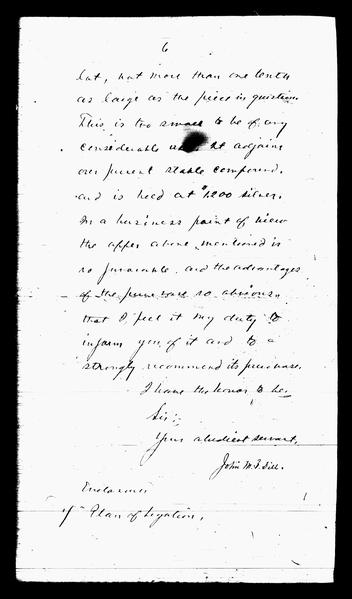 6
lot, not more than one tenth
as large as the piece in question.
This is too small to be of any
considerable it adjoins
our present stable compound.
and is held at $1200 silver.
In a business point of view
the offer above mentioned is
so favorable and the advantages
of the purchase so obvious
that I feel it my duty to
inform you of it and to
strongly recommend its purchase.
I have the honor to be,
Sir:-
Your obedient servant,
John M. B. Sill.
Enclosure
Plan of Legation.